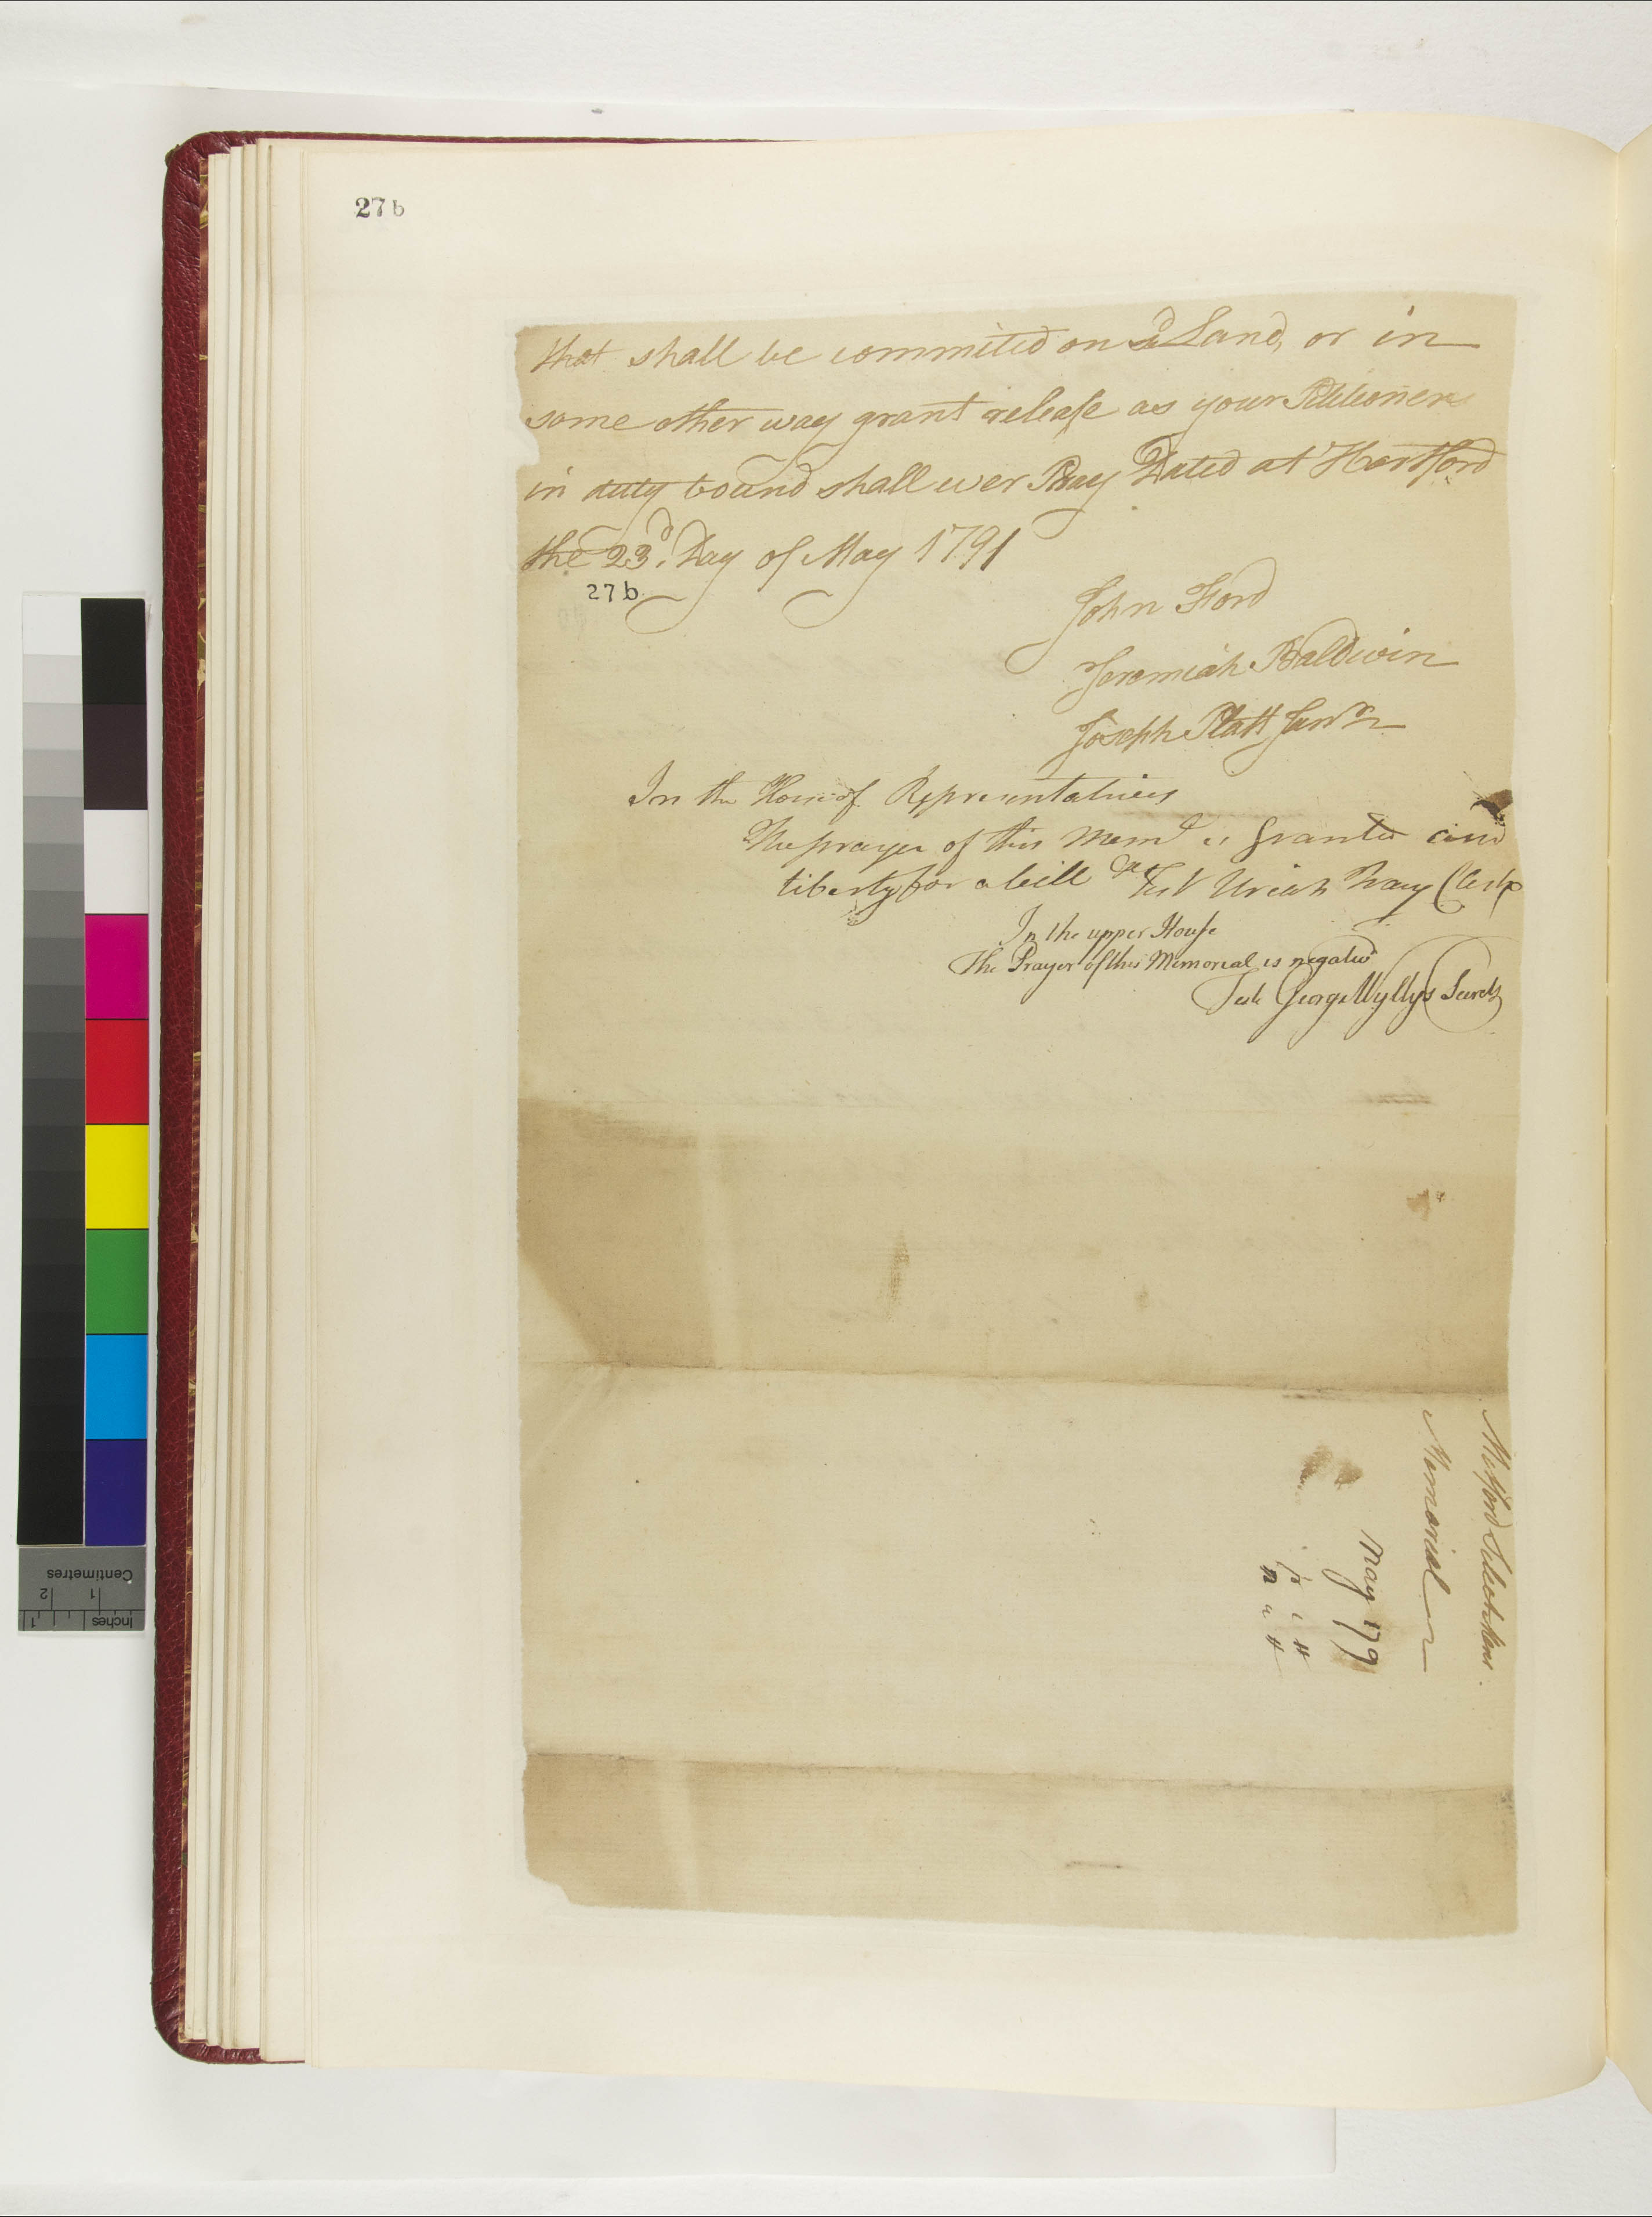 27b
that shall be commited on sd Land, or in
some other way grant releaſe as your Petitioners
in duty bound shall ever Pray Dated at Hartford
the 23d. Day of May 1791
27b.
John Ford
Jeremiah Baldwin
Joseph Platt Junr
In the House of Representatives
The prayer of this Meml is Granted and
liberty for a bill &c Test Uriah Tracy Clerk
In the upper Houſe
The Prayer of this Memorial is negatived
Teste George Wyllys Secrety
Milford Selectmens
Memorial
May 179
n u H
Centimetres
1 2
Inches
1